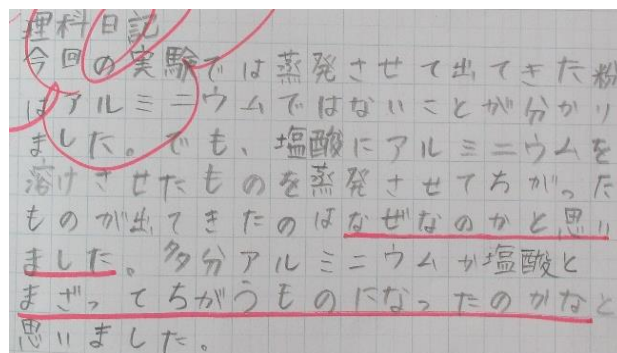 理科日記
今回の実験では蒸発させて出てきた粉
はアルミニウムではないことが分かり
ました。でも、塩酸にアルミニウムを
溶けさせたものを蒸発させてちがった
ものが出てきたのはなぜなのかと思い
ました。多分アルミニウムが塩酸と
まざってちがうものになったのかなと
思いました。